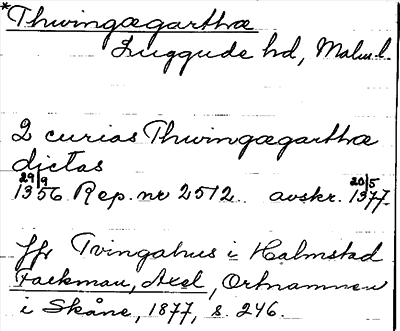 *Thwingægarthæ
Luggude hd, Malm l.
2 curias Thwingægarthæ
dictas
29/9 1356 Rep. nr 2512 avskr. 20/5 1377.
Jfr Tvingahus i Halmstad
Falkman, Axel, Ortnamnen
i Skåne, 1877, s. 246.